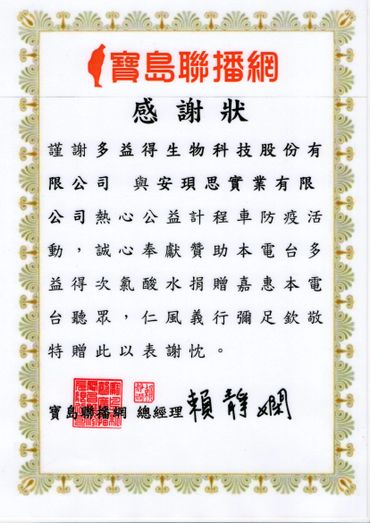 寶島聯播網
感謝狀
謹謝多益得生物科技股份有
限公司 與安瑣思實業有限
公司熱心公益計程車防疫活
動，誠心奉獻贊助本電台多
益得次氯酸水捐贈嘉惠本電
台聽眾，仁風義行彌足欽敬
特贈此以表謝忱。
寶島聯播網 總經理 賴靜嫻